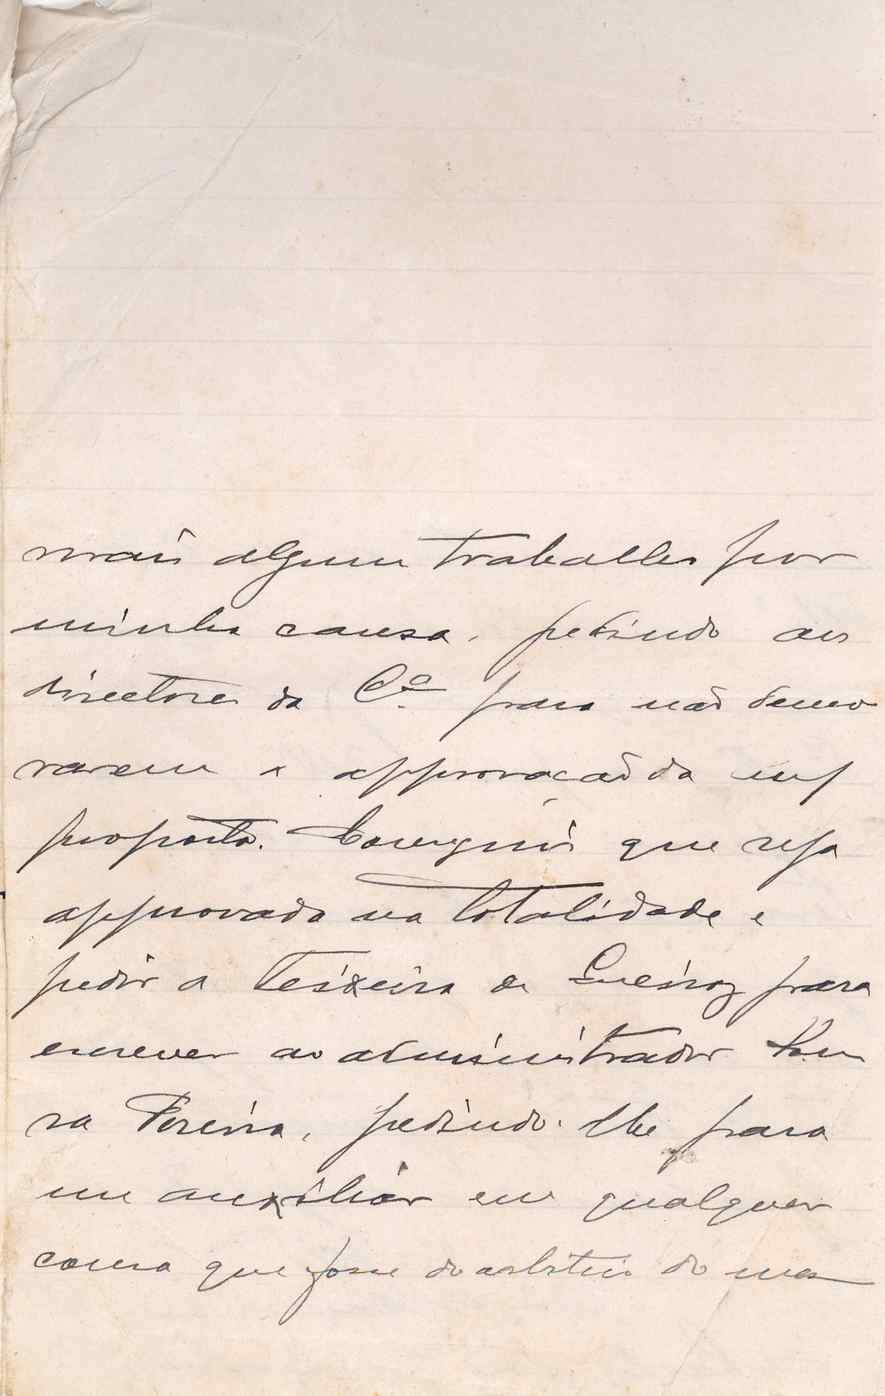 mais algum trabalho por
minha causa, pedindo aos
directores da Cª para não demo
rarem a approvação da m/
proposta. Consegui que seja
approvada na totalidade e
pedir a Teixeira de Queiroz para
escrever ao administrador Sou
sa Pereira, pedindo-lhe para
me auxiliar em qualquer
cousa que fosse do arbitrio do mes